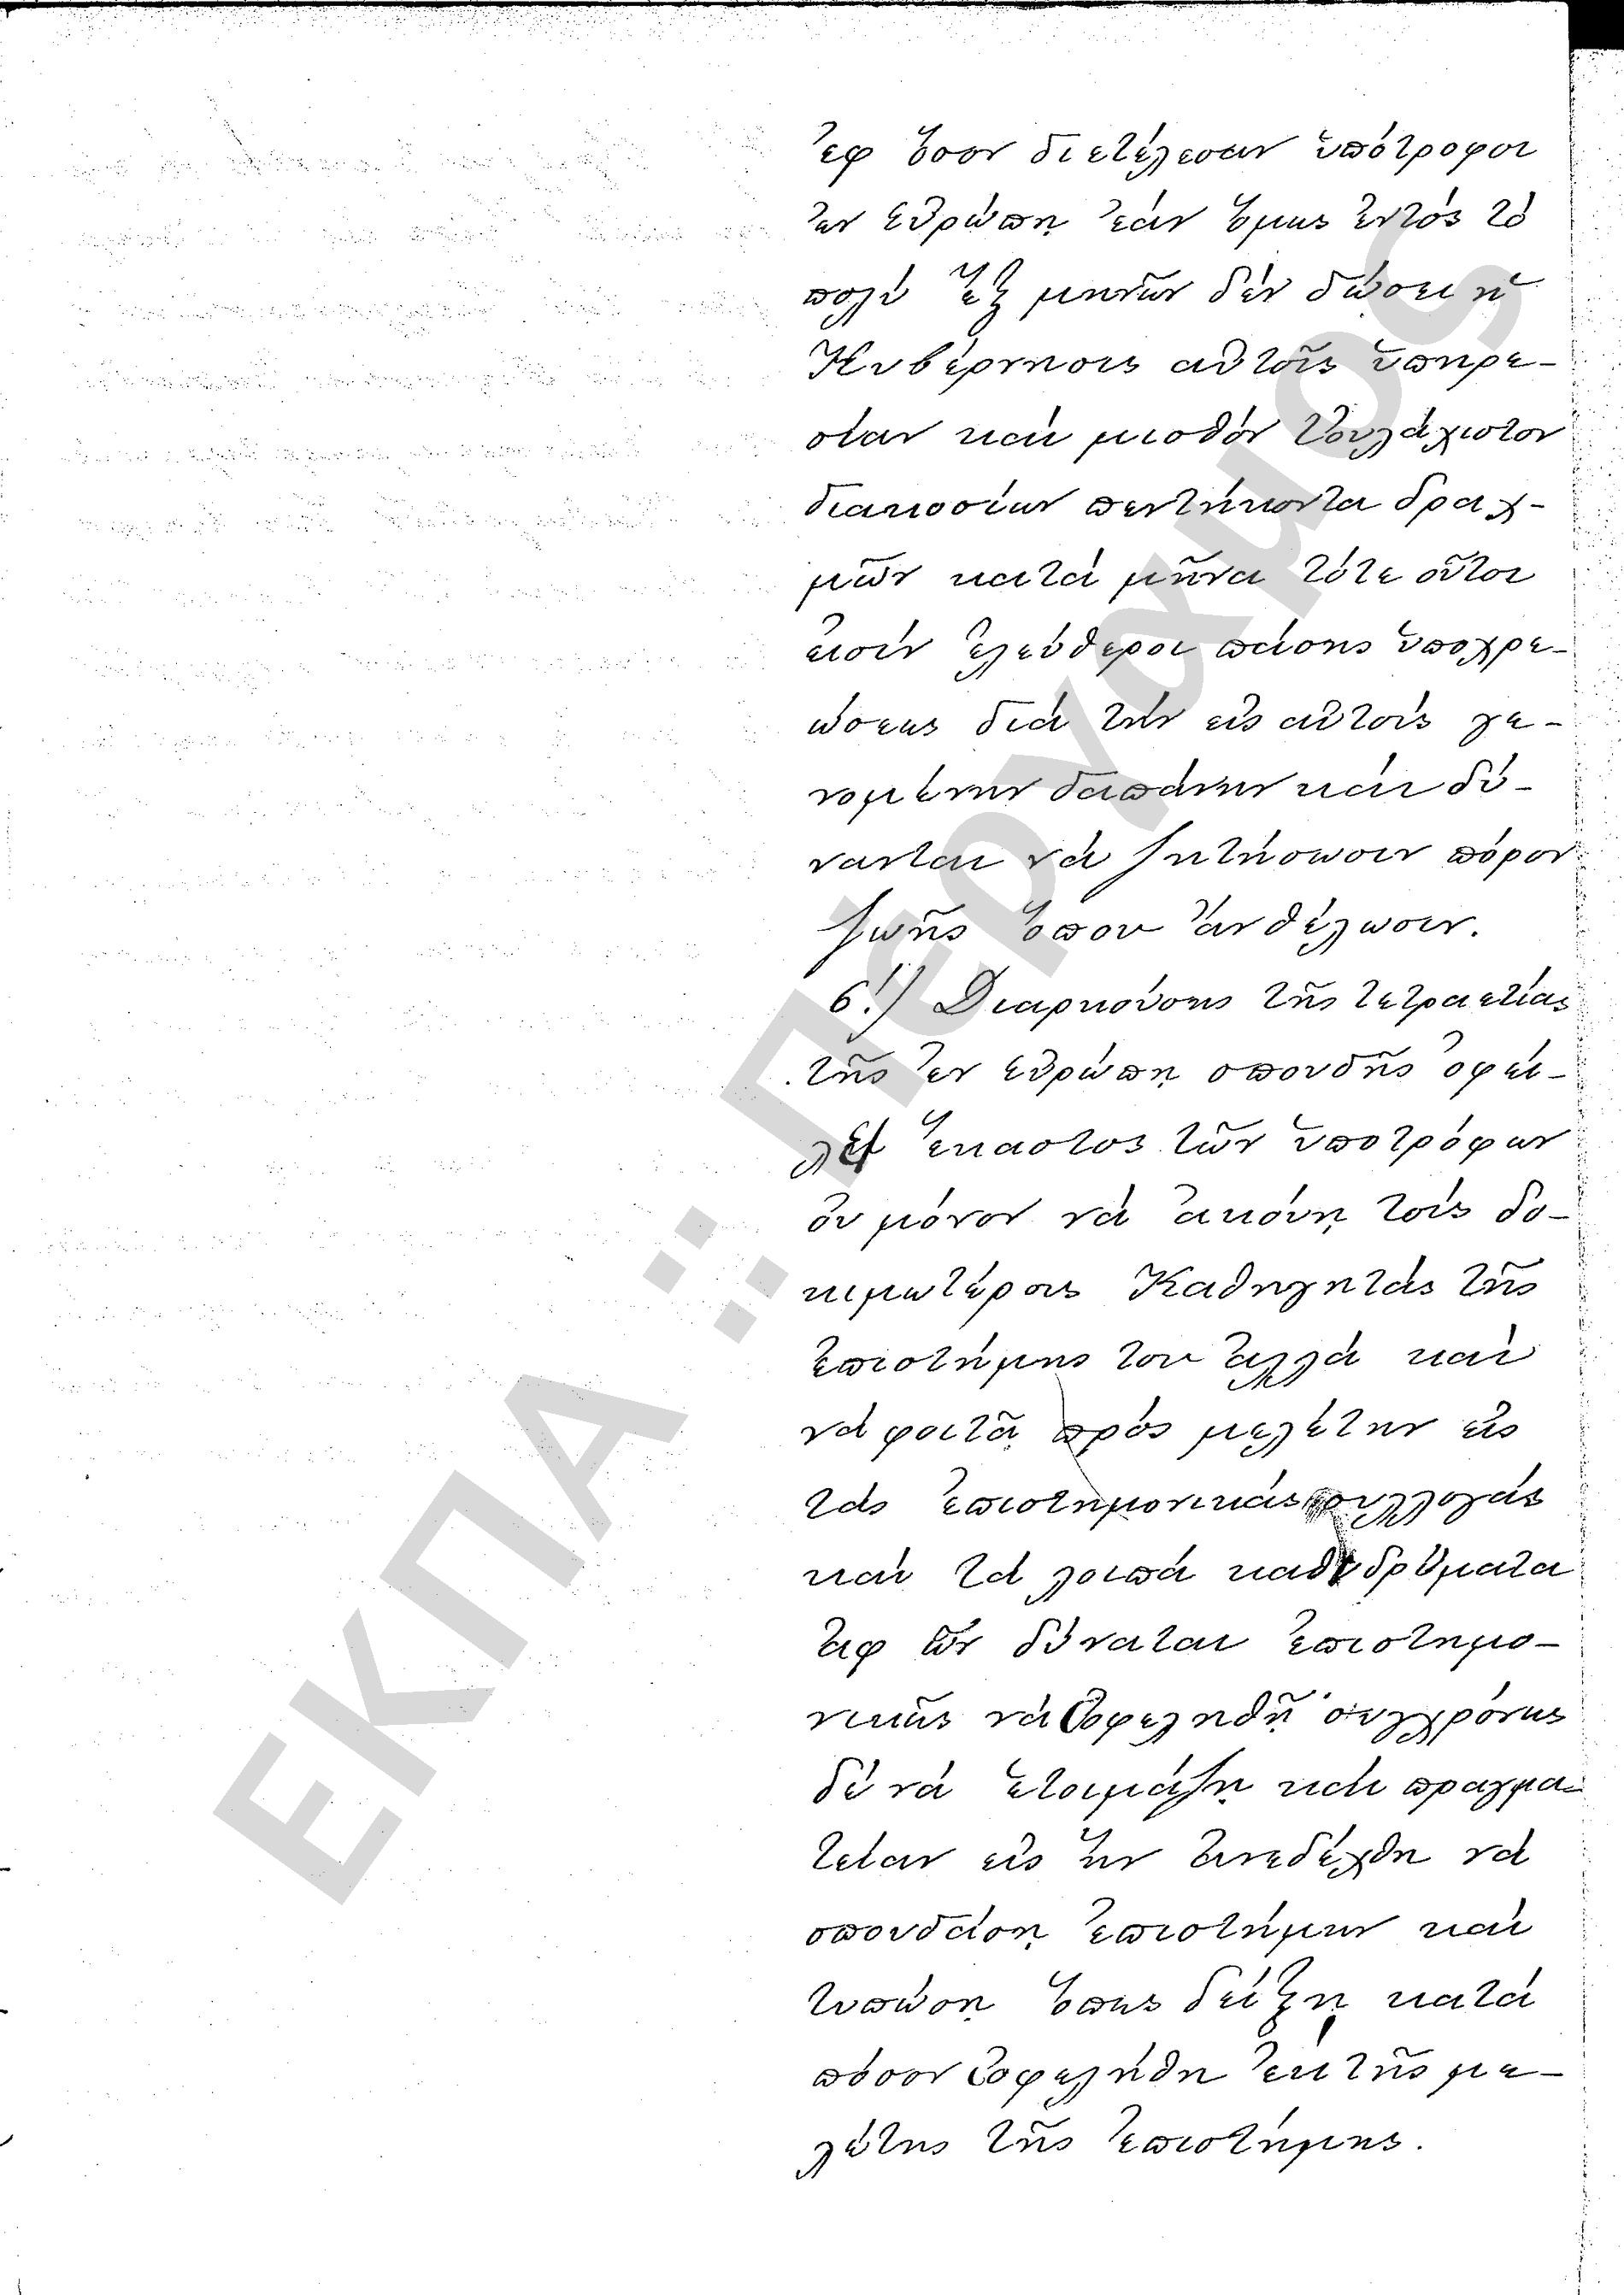 ἐφ ὅσον διετέλεσαν ὑπότροφοι
ἐν Εὐρώπῃ ἐάν ὅμως ἐντός τὸ
πολύ ἕξ μηνῶν δέν δώσει ἡ
Κυβέρνησις αὐτοῖς ὑπηρε-
σίαν καί μισθόν τουλάχιστον
διακοσίων πεντήκοντα δραχ-
μῶν κατά μῆνα τότε οὗτοι
εἰσίν ἐλεύθεροι πάσης ὑποχρε-
ώσεως διά τήν εἰς αὐτούς γε-
νομένην δαπάνην καί δύ-
νανται νά ζητήσωσιν πόρον
ζωῆς ὅπου ἄν θέλωσιν.
6!) Διαρκούσης τῆς τετραετίας
τῆς ἐν Εὐρώπῃ σπουδῆς ὀφεί-
λει ἕκαστος τῶν ὑποτρόφων
οὐ μόνον νά ἀκούῃ τούς δο-
κιμωτέρους Καθηγητάς τῆς
ἐπιστήμης του ἀλλά καί
νά φοιτᾷ πρός μελέτην εἰς
τάς ἐπιστημονικάς συλλογάς
καί τά λοιπά καθιδρύματα
ἀφ ὧν δύναται ἐπιστημο-
νικῶς νά ὠφεληθῇ συγχρόνως
δέ νά ἑτοιμάζῃ καί πραγμα-
τείαν εἰς ἥν ἀνεδέχθη νά
σπουδάσῃ ἐπιστήμην καί
τυπώσῃ ὅπως δείξῃ κατά
πόσον ὠφελήθη ἐκ τῆς με-
λέτης τῆς ἐπιστήμης.
ΕΚΠΑ :: Πέργαμος